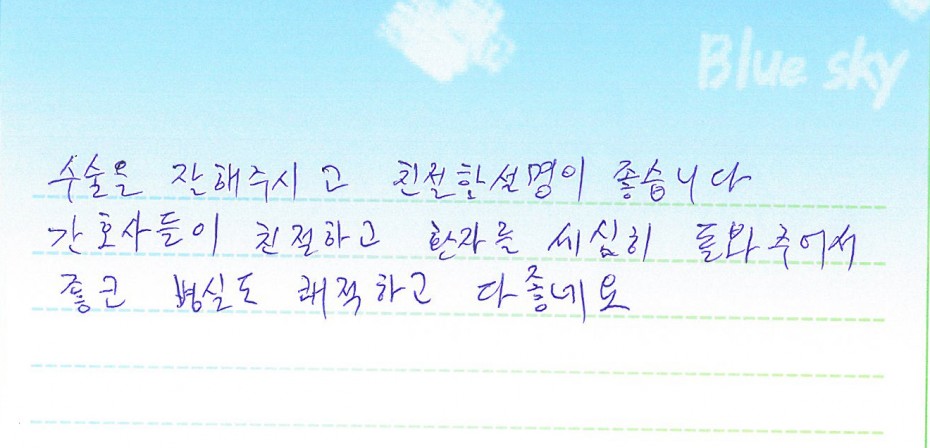 Blue sky
수술을 잘해주시고 친절한설명이 좋습니다
간호사들이 친절하고 환자를 세심히 돌봐주어서
좋코 병실도 쾌적하고 다좋네요